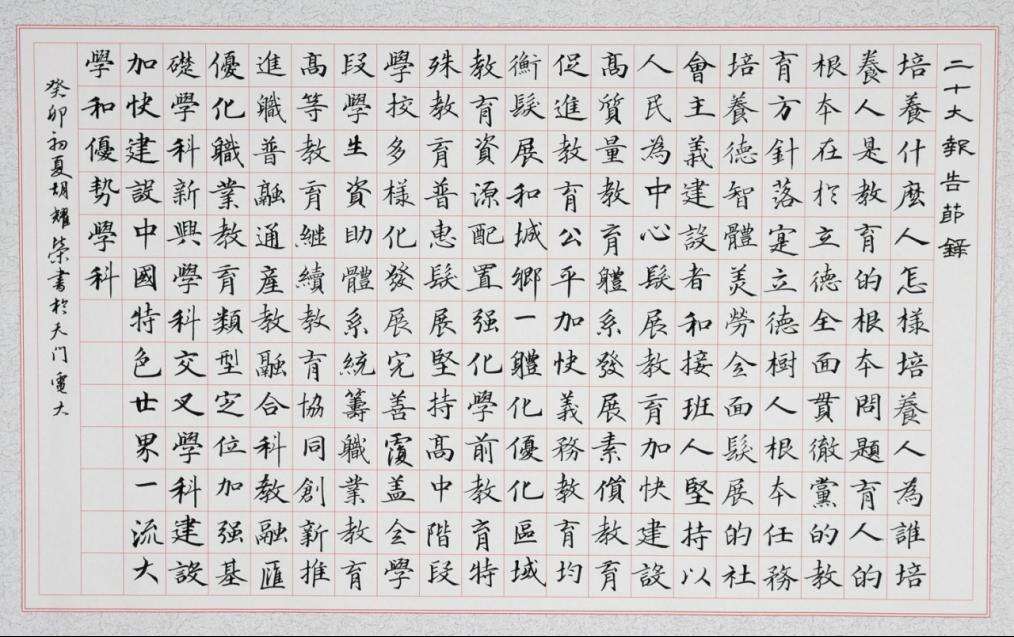 二十大報告莭錄
培養什麼人怎樣培養人為誰培
養人是教育的根本問題育人的
根本在於立德全面貫徹黨的教
育方針落寔立德樹人根本任務
培養德智體美勞全面髮展的社
會主義建設者和接班人堅持以
人民為中心髮展教育加快建設
高質量教育軆系發展素償教育
促進教育公平加快義務教育均
衡髮展和城鄉一軆化優化區域
教育資源配置强化學前教育特
殊教育普惠髮展堅持高中階段
學校多樣化發展完善覆盖全學
段學生資助體系統籌軄業教育
高等教育繼續教育協同創新推
進軄普融通産教融合科教融匯
優化軄業教育類型定位加强基
礎學科新興學科交叉學科建設
加快建設中國特色世界一流大
學和優勢學科
癸卯初夏胡耀榮書於天门電大